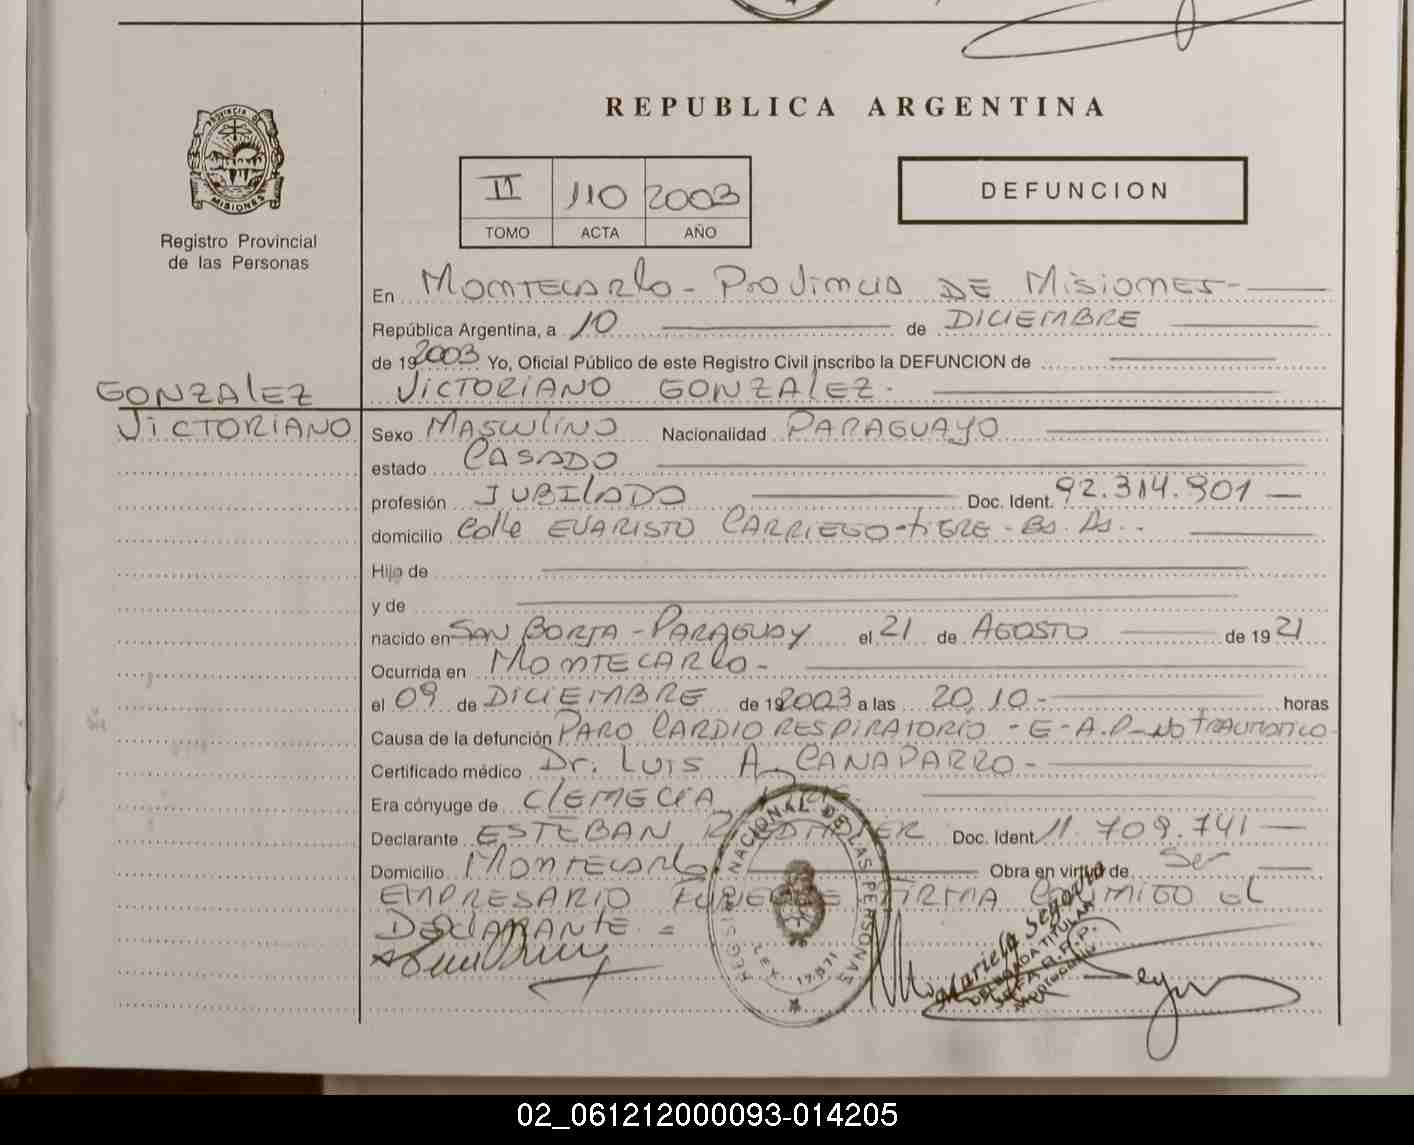 REPUBLICA ARGENTINA
PROVINCIA DE
MISIONES
Registro Provincial
de las Personas
II 110 2003
TOMO ACTA AÑO
DEFUNCION
En MONTECARLO - PROVINCIA DE MISIONES -
República Argentina, a 10 de DICIEMBRE
de 192003 Yo, Oficial Público de este Registro Civil inscribo la DEFUNCION de
GONZALEZ VICTORIANO GONZALEZ.
VICTORIANO Sexo MASCULINO Nacionalidad PARAGUAYO
estado CASADO
profesión JUBILADO Doc. Ident. 92.314.901 -
domicilio Calle EVARISTO CARRIEGO - TIGRE - Bs. As. -
Hijo de
y de
nacido en SAN BORJA - PARAGUAY el 21 de AGOSTO de 1921
Ocurrida en MONTECARLO -
el 09 de DICIEMBRE de 192003 a las 20,10 - horas
Causa de la defunción PARO CARDIORESPIRATORIO - E - A.P - NO TRAUMATICO -
Certificado médico Dr. LUIS A. CANAPARRO -
Era cónyuge de CLEMECIA
Declarante ESTEBAN Doc. Ident 11.709.741 -
Domicilio MONTECARLO Obra en virtud de Ser
EMPRESARIO FUNEBRE FIRMA CONMIGO EL
DECLARANTE =
REGISTRO NACIONAL DE LAS PERSONAS
LEY 17.671
Mariela Segovia
DELEGADA TITULAR
02_061212000093-014205